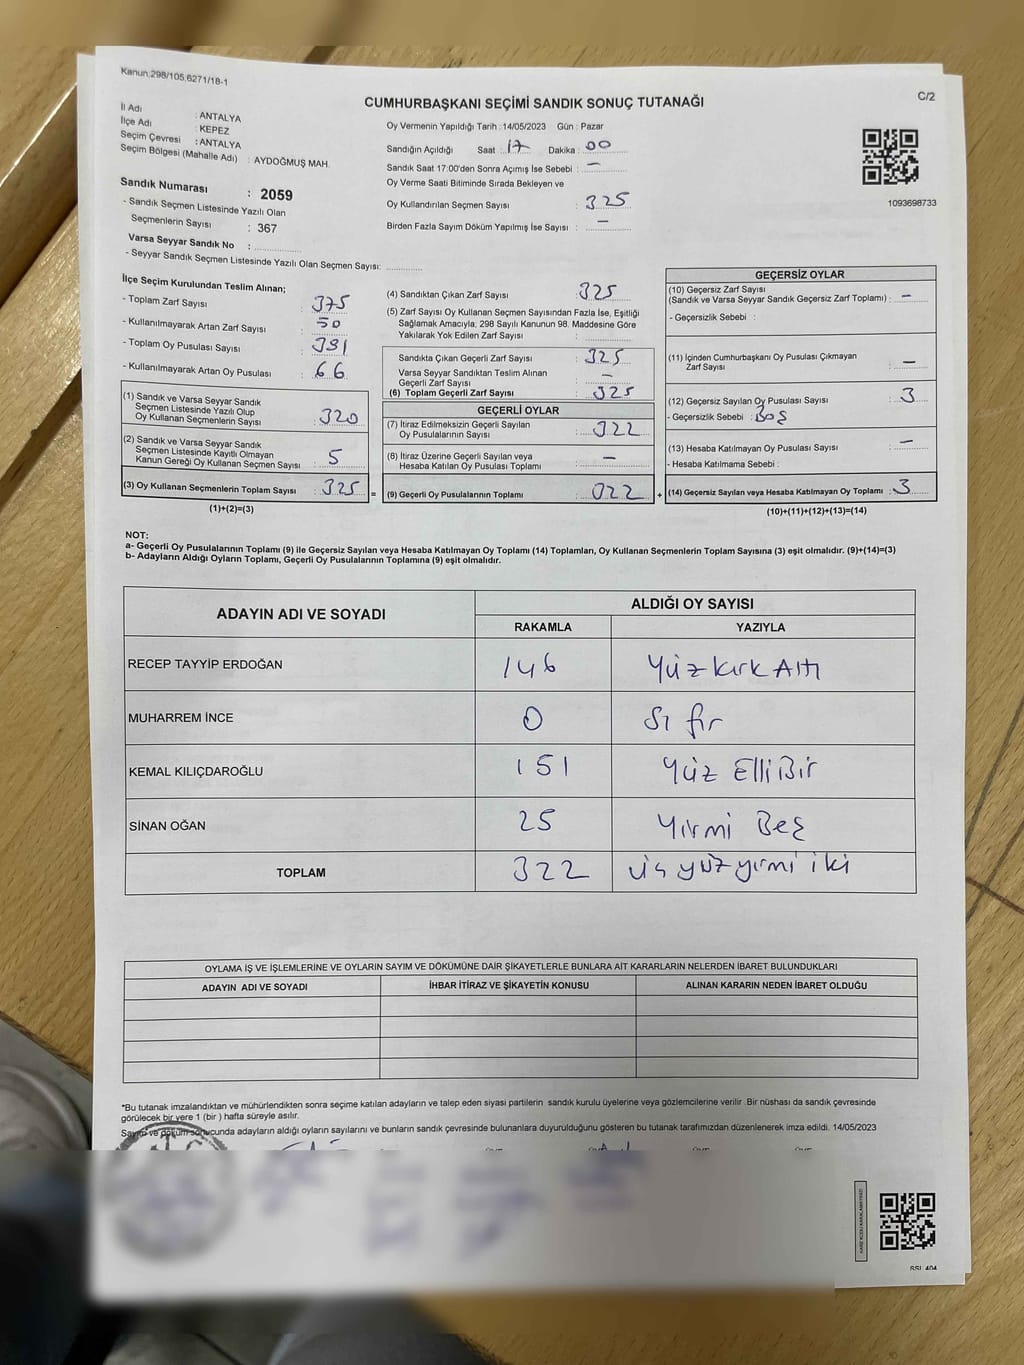 Kanun:298/105,6271/18-1
C/2
CUMHURBAŞKANI SEÇİMİ SANDIK SONUÇ TUTANAĞI
İl Adı : ANTALYA
İlçe Adı : KEPEZ
Seçim Çevresi : ANTALYA
Seçim Bölgesi (Mahalle Adı) : AYDOĞMUŞ MAH.
Sandık Numarası : 2059
- Sandık Seçmen Listesinde Yazılı Olan
Seçmenlerin Sayısı : 367
Varsa Seyyar Sandık No :
- Seyyar Sandık Seçmen Listesinde Yazılı Olan Seçmen Sayısı:
Oy Vermenin Yapıldığı Tarih :14/05/2023 Gün : Pazar
Sandığın Açıldığı Saat : 17 Dakika : 00
Sandık Saat 17:00'den Sonra Açımış İse Sebebi : –
Oy Verme Saati Bitiminde Sırada Bekleyen ve
Oy Kullandırılan Seçmen Sayısı : 325
Birden Fazla Sayım Döküm Yapılmış İse Sayısı : –
1093698733
İlçe Seçim Kurulundan Teslim Alınan;
- Toplam Zarf Sayısı : 375
- Kullanılmayarak Artan Zarf Sayısı : 50
- Toplam Oy Pusulası Sayısı : 391
- Kullanılmayarak Artan Oy Pusulası : 66
(1) Sandık ve Varsa Seyyar Sandık
Seçmen Listesinde Yazılı Olup
Oy Kullanan Seçmenlerin Sayısı : 320
(2) Sandık ve Varsa Seyyar Sandık
Seçmen Listesinde Kayıtlı Olmayan
Kanun Gereği Oy Kullanan Seçmen Sayısı : 5
(3) Oy Kullanan Seçmenlerin Toplam Sayısı : 325 =
(1)+(2)=(3)
(4) Sandıktan Çıkan Zarf Sayısı : 325
(5) Zarf Sayısı Oy Kullanan Seçmen Sayısından Fazla İse, Eşitliği
Sağlamak Amacıyla, 298 Sayılı Kanunun 98. Maddesine Göre
Yakılarak Yok Edilen Zarf Sayısı :
Sandıkta Çıkan Geçerli Zarf Sayısı : 325
Varsa Seyyar Sandıktan Teslim Alınan
Geçerli Zarf Sayısı : –
(6) Toplam Geçerli Zarf Sayısı : 325
GEÇERLİ OYLAR
(7) İtiraz Edilmeksizin Geçerli Sayılan
Oy Pusulalarının Sayısı : 322
(8) İtiraz Üzerine Geçerli Sayılan veya
Hesaba Katılan Oy Pusulası Toplamı : –
(9) Geçerli Oy Pusulalarının Toplamı : 322 +
GEÇERSİZ OYLAR
(10) Geçersiz Zarf Sayısı
(Sandık ve Varsa Seyyar Sandık Geçersiz Zarf Toplamı) : –
- Geçersizlik Sebebi :
(11) İçinden Cumhurbaşkanı Oy Pusulası Çıkmayan
Zarf Sayısı : –
(12) Geçersiz Sayılan Oy Pusulası Sayısı : 3
- Geçersizlik Sebebi : Boş
(13) Hesaba Katılmayan Oy Pusulası Sayısı : –
- Hesaba Katılmama Sebebi :
(14) Geçersiz Sayılan veya Hesaba Katılmayan Oy Toplamı : 3
(10)+(11)+(12)+(13)=(14)
NOT:
a- Geçerli Oy Pusulalarının Toplamı (9) ile Geçersiz Sayılan veya Hesaba Katılmayan Oy Toplamı (14) Toplamları, Oy Kullanan Seçmenlerin Toplam Sayısına (3) eşit olmalıdır. (9)+(14)=(3)
b- Adayların Aldığı Oyların Toplamı, Geçerli Oy Pusulalarının Toplamına (9) eşit olmalıdır.
ADAYIN ADI VE SOYADI ALDIĞI OY SAYISI
RAKAMLA YAZIYLA
RECEP TAYYİP ERDOĞAN 146 Yüz kırk Altı
MUHARREM İNCE 0 Sıfır
KEMAL KILIÇDAROĞLU 151 Yüz Elli Bir
SİNAN OĞAN 25 Yirmi Beş
TOPLAM 322 üç yüz yirmi iki
OYLAMA İŞ VE İŞLEMLERİNE VE OYLARIN SAYIM VE DÖKÜMÜNE DAİR ŞİKAYETLERLE BUNLARA AİT KARARLARIN NELERDEN İBARET BULUNDUKLARI
ADAYIN ADI VE SOYADI İHBAR İTİRAZ VE ŞİKAYETİN KONUSU ALINAN KARARIN NEDEN İBARET OLDUĞU
*Bu tutanak imzalandıktan ve mühürlendikten sonra seçime katılan adayların ve talep eden siyasi partilerin sandık kurulu üyelerine veya gözlemcilerine verilir .Bir nüshası da sandık çevresinde
görülecek bir yere 1 (bir ) hafta süreyle asılır.
Sayım ve döküm sonucunda adayların aldığı oyların sayılarını ve bunların sandık çevresinde bulunanlara duyurulduğunu gösteren bu tutanak tarafımızdan düzenlenerek imza edildi. 14/05/2023